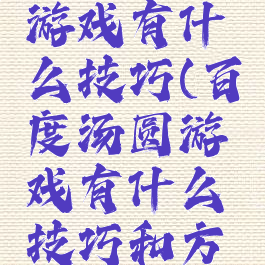 游戏有什
么技巧(百
度汤圆游
戏有什么
技巧和方